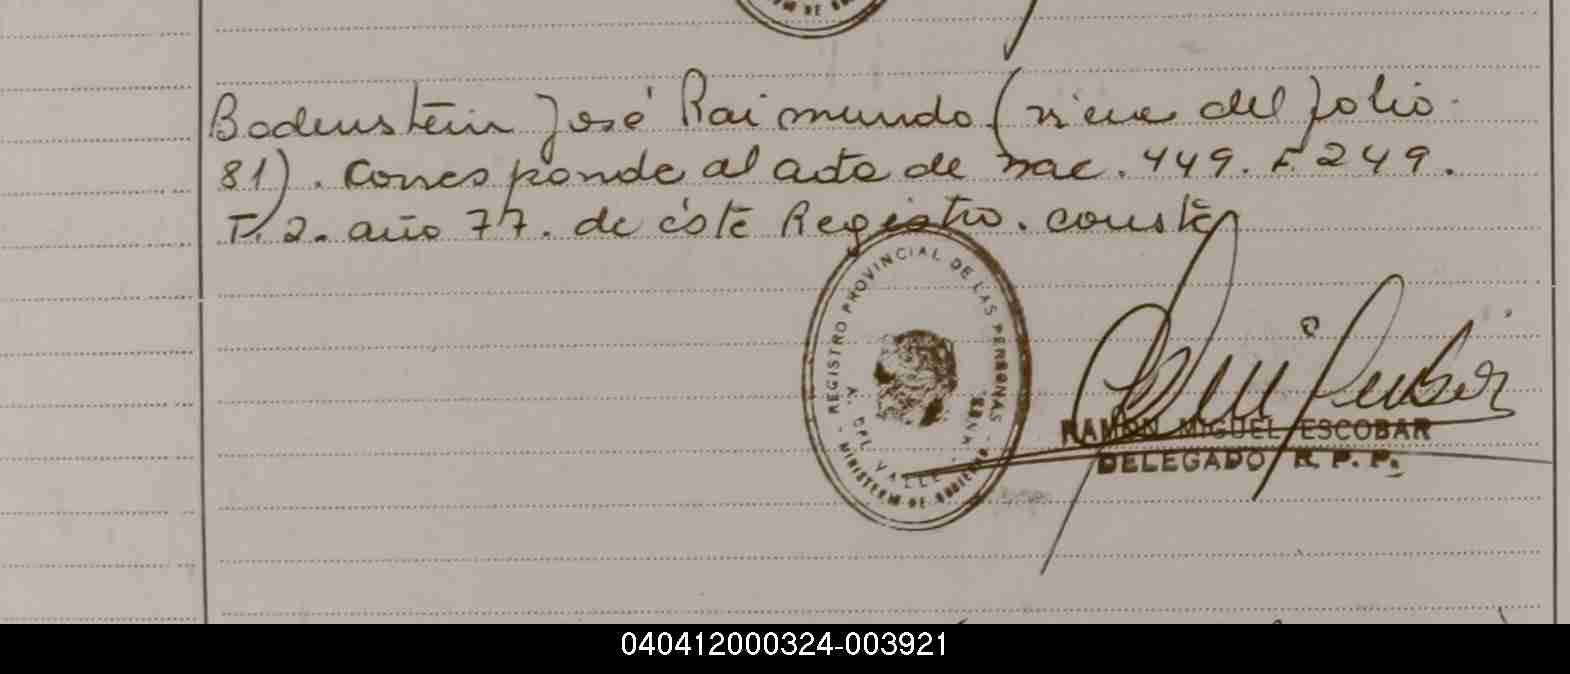 Bodenstein José Raimundo (viene del folio
81). Corresponde al acta de nac. 449. F. 249.
T. 2. año 77. de éste Registro. conste
- REGISTRO PROVINCIAL DE LAS PERSONAS -
MINISTERIO DE GOBIERNO
DEL VALLE
RAMON MIGUEL ESCOBAR
DELEGADO R. P. P.
040412000324-003921